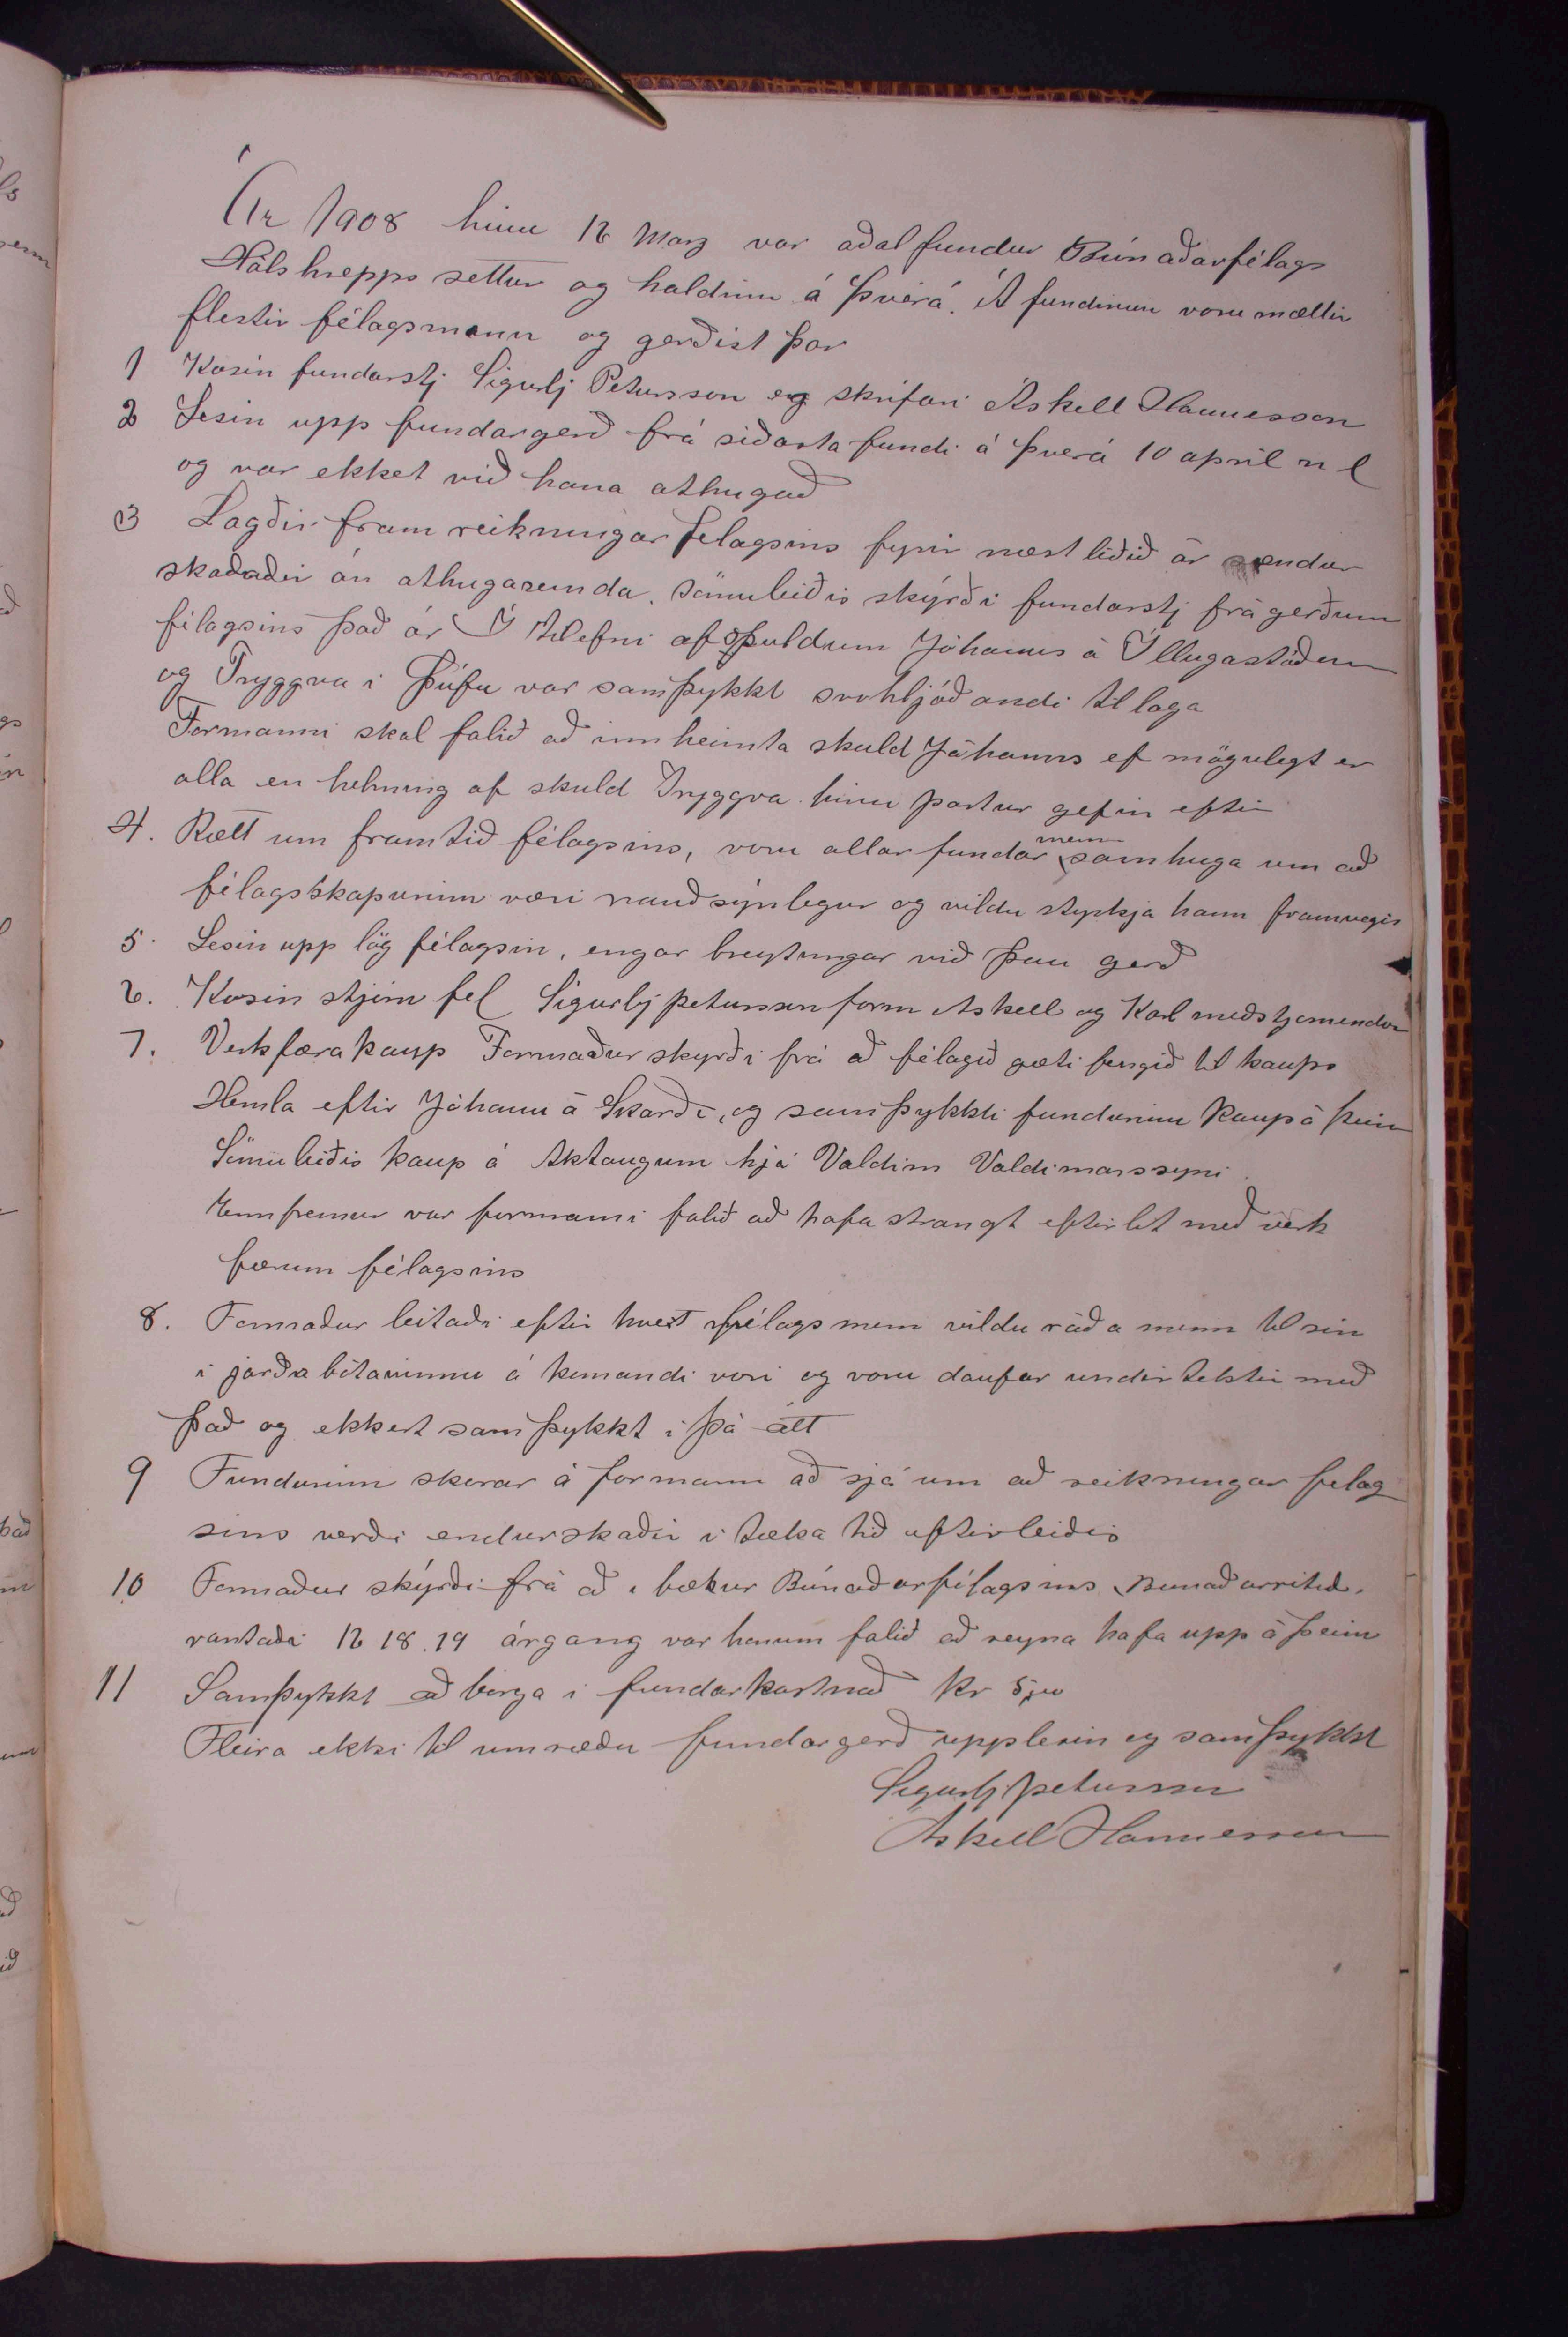 Ár 1908 hinn 12 Marz var aðalfundur Búnaðarfélags
Hálshrepps settur og haldinn á Þverá. Á fundinum voru mættir
flestir félagsmenn og gerðist þar
1 Kosin fundarstj Sigurlj Petursson og skrifari Áskell Hannesson
2 Lesin upp fundargerð frá siðasta fundi á Þverá 10 april n l
og var ekket við hana athugað
3 Lagðir fram reikningar felagsins fyrir næstliðið ár endur
skaðaðir án athugasemda. Sömuleiðis skýrði fundarstj frá gerðum
félagsins það ár Í tilefni af skuldum Jóhanns á Illugastöðum
og Tryggva i Þúfu var samþykkt svohljóðandi tillaga
Formanni skal falið að innheimta skuld Jóhanns ef mögulegt er
alla en helming af skuld Tryggva hinn partur gefin eftir
4. Rætt um framtið félagsins, voru allar fundar menn samhuga um að
félagsskapurinn væri nauðsýnlegur og vildu styrkja hann framvegis
5. Lesin upp lög félagsin, engar breytingar við þau gerð
6. Kosin stjórn fel Sigurlj Petursson form Askell og Karl meðstjornendur
7. Verkfærakaup Formaður skyrði frá að félagið gæti fengið til kaups
Hemla eftir Jóhann á Skarði, og samþykkti fundurinn kaup á þeim
Sömuleiðis kaup á Aktaugum hjá Valdim Valdimarssyni.
Ennfremur var formanni falið að hafa strangt eftirlit með verk
færum félagsins
8. Formaður leitaði eftir hvert félagsmenn vildu ráða menn til sin
i jarðabótavinnu á komandi vori og voru daufar undirtektir með
það og ekkert samþykkt i þá átt
9 Fundurinn skorar á formann að sjá um að reikningar felag
sins verði endurskaðir i tæka tið eftirleiðis
10 Formaður skýrði frá að i bækur Búnaðarfélagsins Bunaðarritið,
vantaði 12 18. 19 árgang var honum falið að reyna hafa upp á þeim
11 Samþykkt að borga i fundarkostnað kr 5,00
Fleira ekki til umræðu fundargerð upplesin og samþykkt
Sigurlj Petursson
Áskell Hannesson